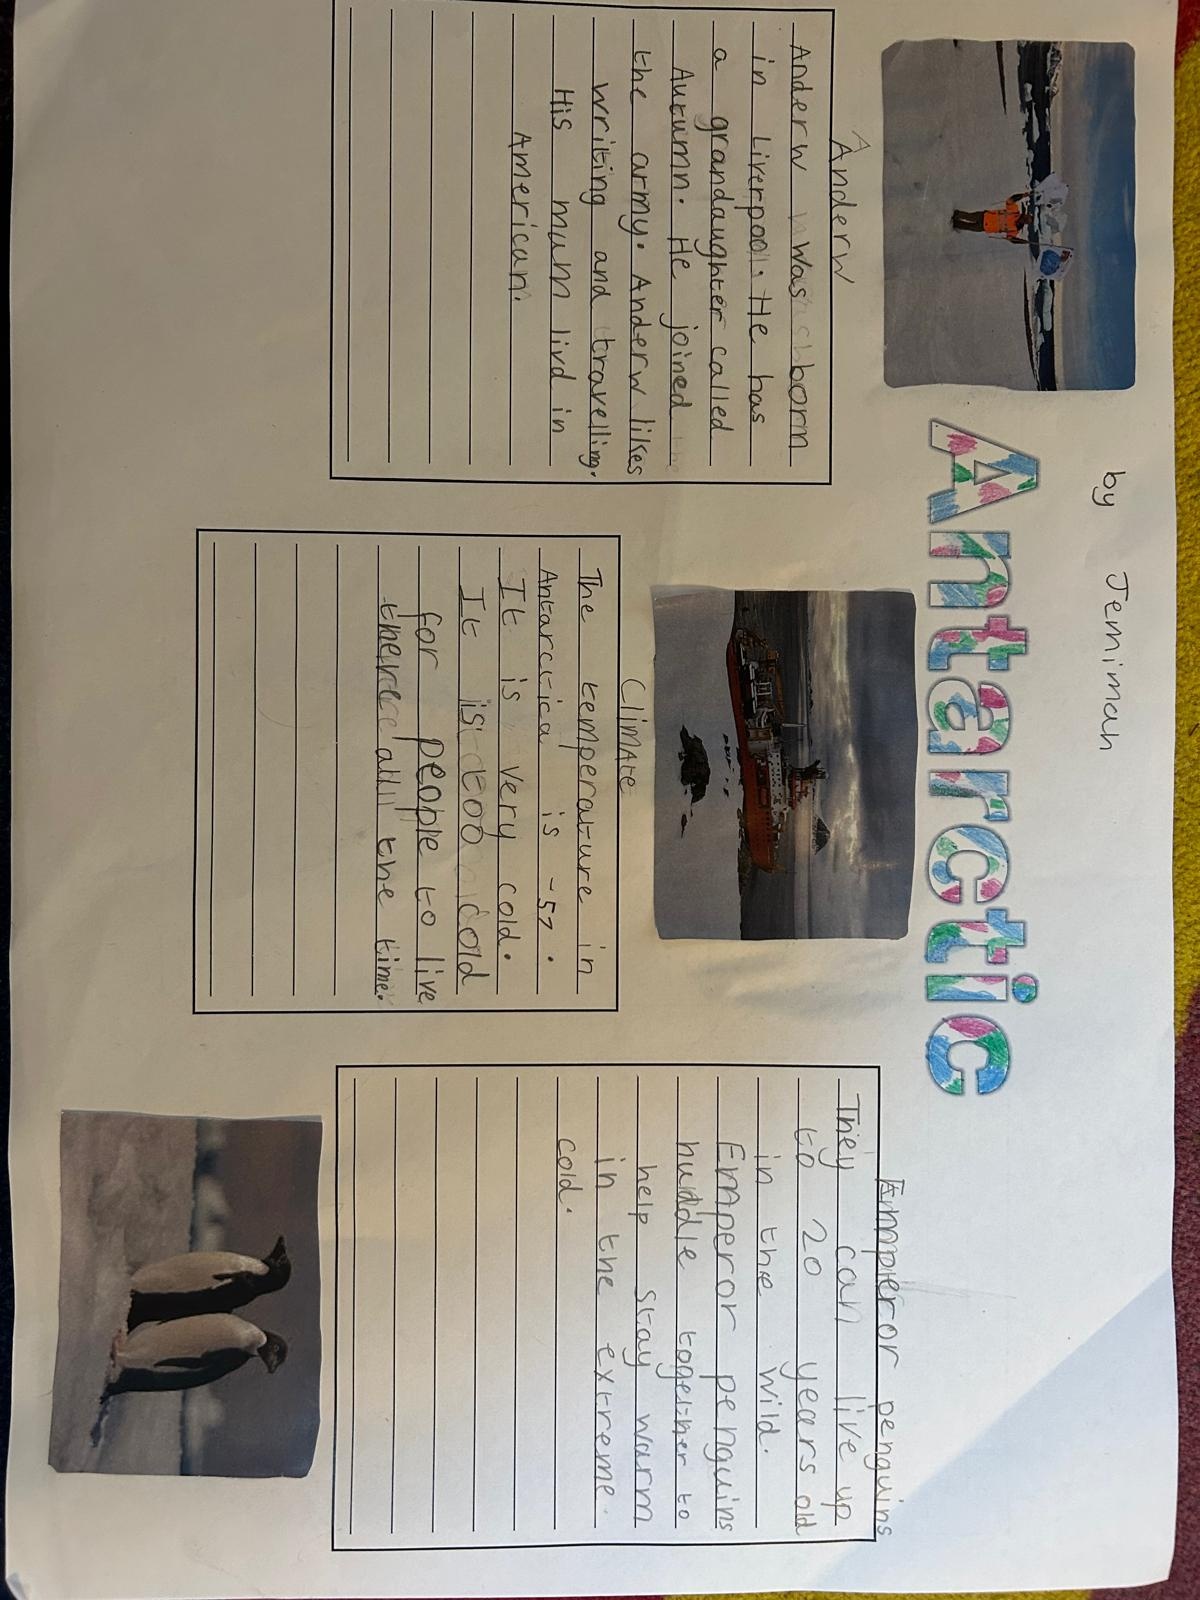 by Jemimah
Antarctic
Anderw
Anderw was born
in Liverpool. He has
a grandaughter called
Autumn. He joined
the army. Anderw likes
writing and travelling.
His mum livd in
American.
Climate
The temperature in
Antarctica is -57.
It is very cold.
It is too cold
for people to live
there all the time.
Emperor penguins
They can live up
to 20 years old
in the wild.
Emperor penguins
huddle together to
help stay warm
in the extreme
cold.